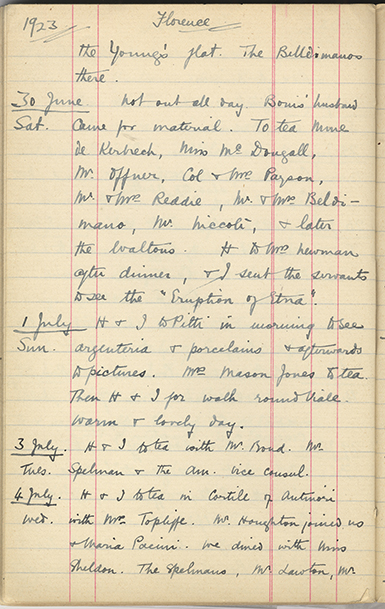 1923 Florence
the Young's flat. The Beldimanos
there.
30 June. Not out all day. Boni's husband
Sat. Came for material. To tea Mme
de Kerbrech, Miss Mc Dougall,
Mr. Offner, Col & Mrs Payson,
Mr & Mrs Reddie, Mr & Mrs Beldi-
mano, Mr. Niccoli, & later
the Waltons. H to Mrs Newman
after dinner, & I sent the servants
to see the "Eruption of Etna".
1 July H & I to Pitti in morning to see
Sun. argenteria & porcelains & afterwards
to pictures. Mrs Mason Jones to tea.
Then H & I for walk round Viale.
Warm & lovely day.
3 July. H & I to tea with Mr. Bond. Mr.
Tues. Spelman & the Am. Vice Consul.
4 July. H & I to tea in Cortile of Antinori
Wed. with Mrs Topliffe. Mr. Houghton joined us
& Maria Pacini. We dined with Miss
Sheldon. The Spelmans, Mr. Lawton, Mr.